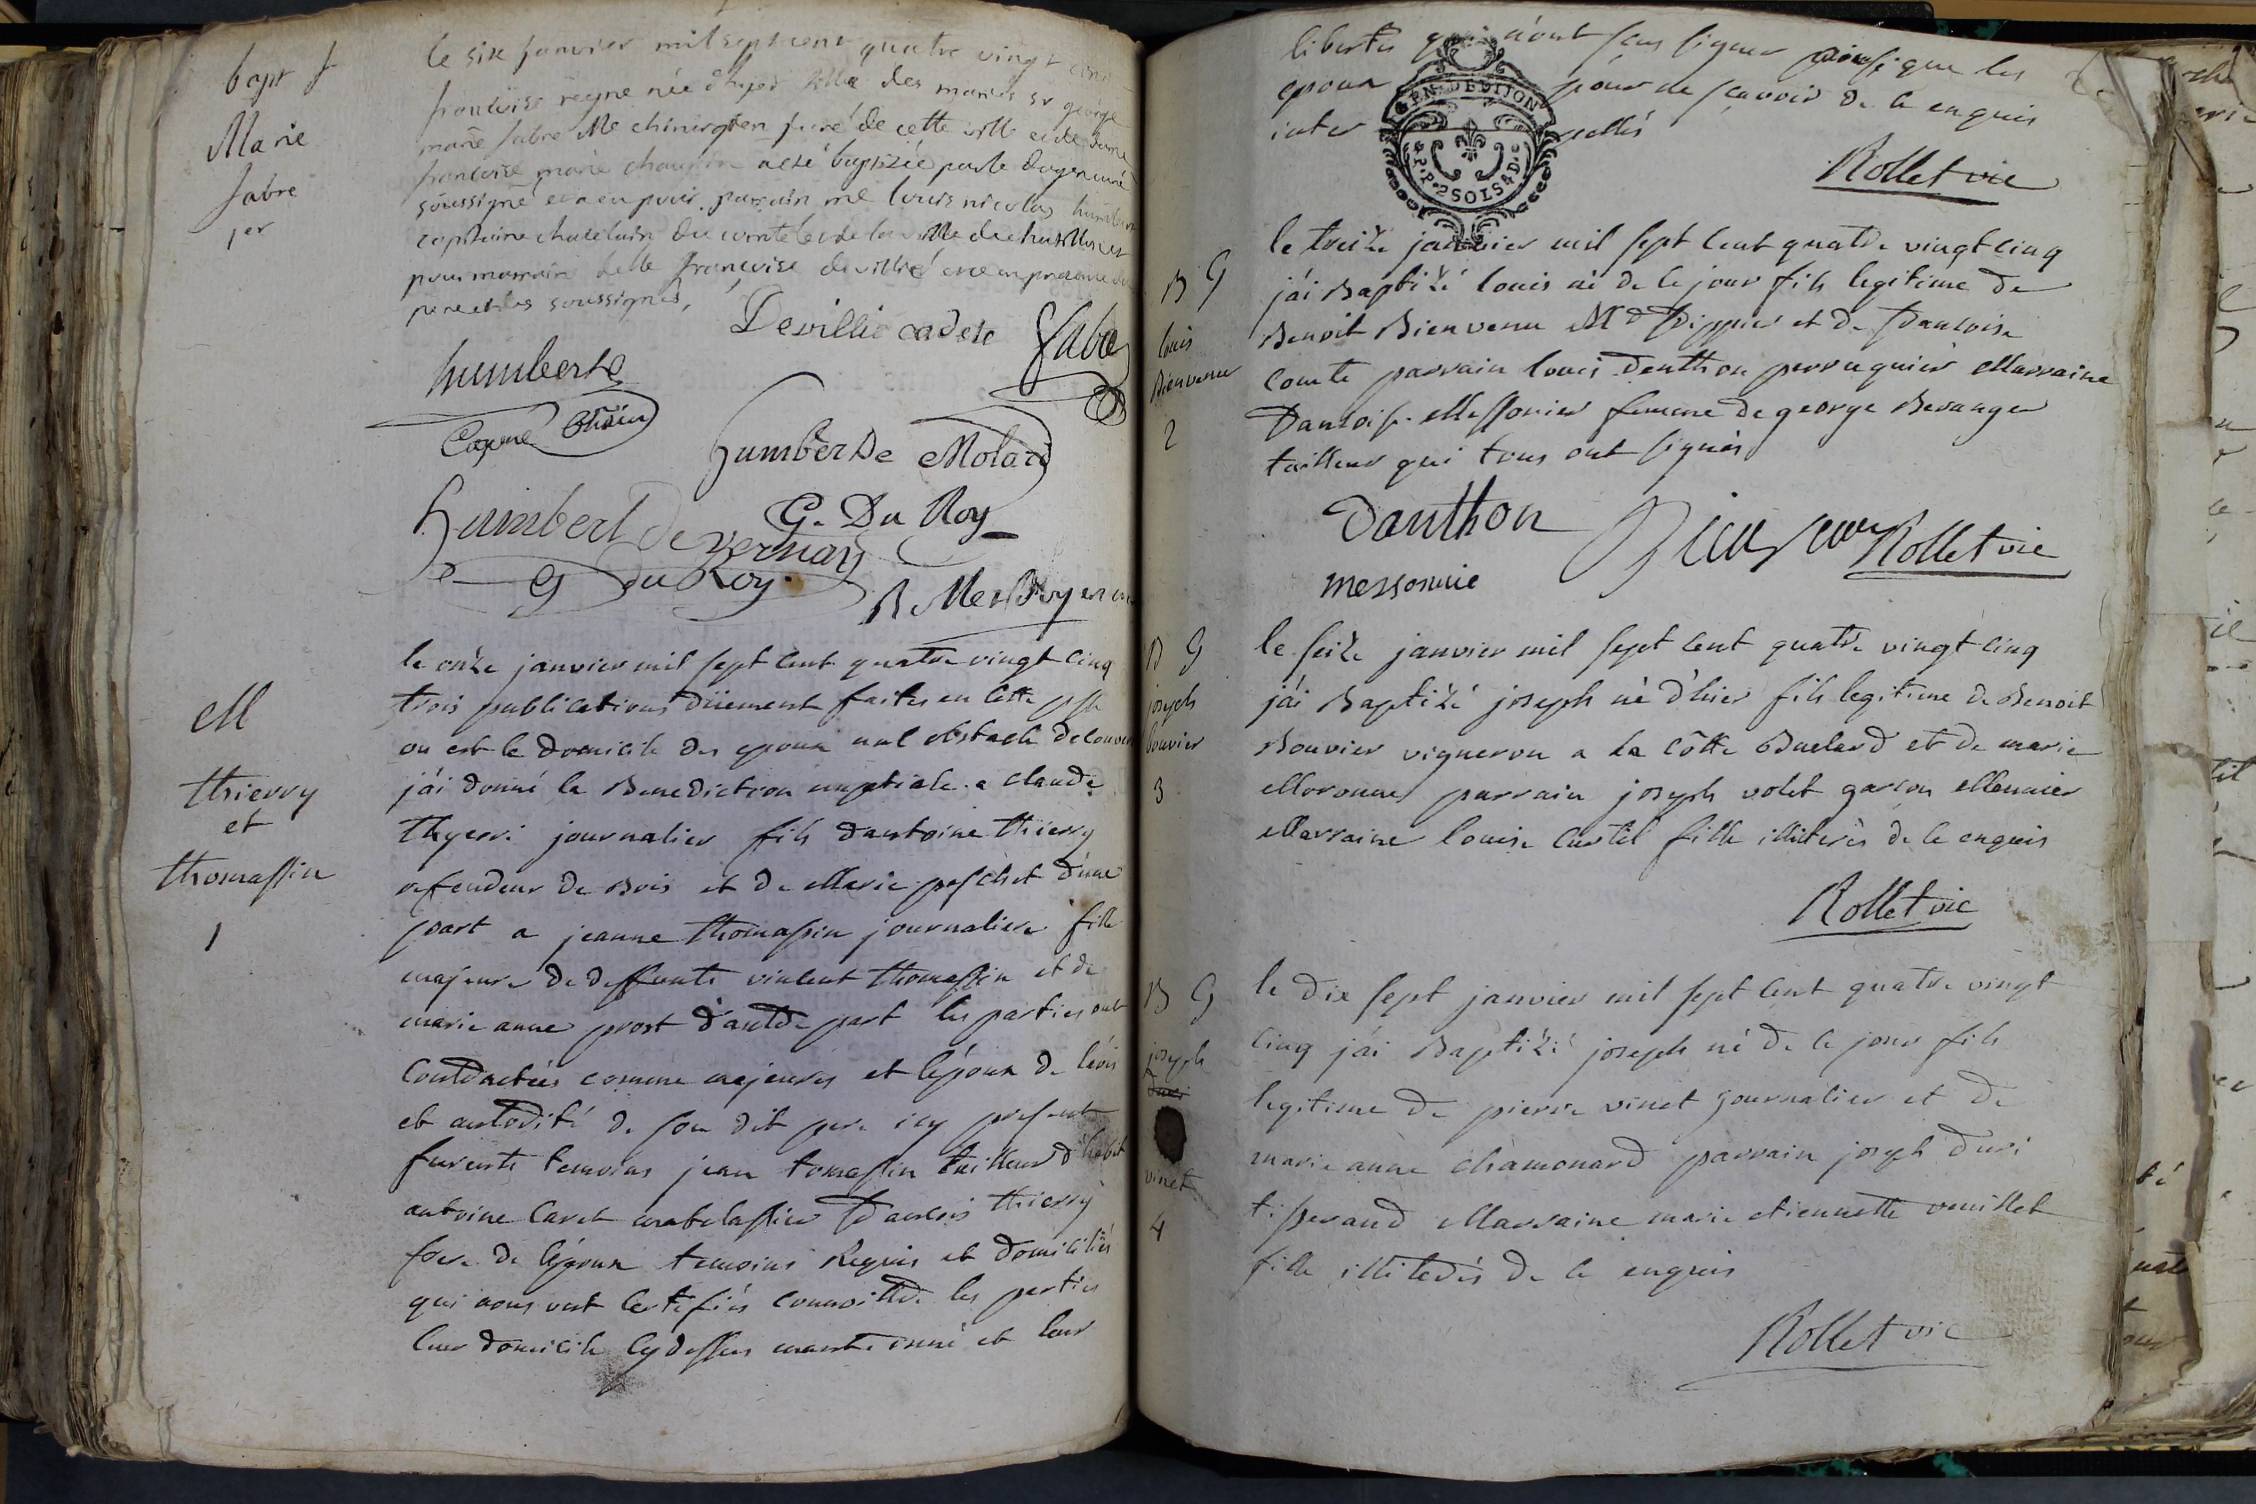 bapt f
Marie
fabre
1er
le six janvier mil sept cent quatre vingt cinq
françoise reyne née d'hyer fille des mariés sr george
marie fabre Me chirurgien juré de cette ville et de dame
françoise marie chaupin a esté baptizée par le doyen curé
soussigné et a eu pour parrain me louis nicolas humbert
capitaine chatelain du comté et de la ville de chatillon et
pour marraine delle françoise devillié et ce en presence du
pere et des soussignés,
Devillie cadete
fabre
humberte
Humbert De Molard
G. Du Roy
Humbert De vernas
G du Roy
M
thierry
et
thomassin
1
le onze janvier mil sept cent quatre vingt cinq
trois publications düement faites en cette psse
ou est le domicile des epoux nul obstacle decouvert
j'ai donné la Benediction nuptiale a claude
thyerri journalier fils d'antoine thierry
refendeur de Bois et de Marie paschet d'une
part a jeanne thomassin journaliere fille
majeure de deffunts vincent thomassin et de
marie anne prost d'autre part les parties ont
contractées comme majeures et l'époux de l'avis
et autorité de son dit pere icy present
furents temoins jean tomassin tailleur d'habit
antoine caret matelassier francois thierry
frere de l'époux temoins Requis et domiciliés
qui nous ont certifiés connoitre les parties
leur domicile cydessus mentionné et leur
libertés qui n'ont sçus signer ainsi que les
epoux pour de sçavoir de ce enquis
inter pellés
Rollet vic
GEN. DE DIJON
P.P. 2 SOLS 4 D.
B G
louis
Bienvenu
2
le treize janvier mil sept cent quatre vingt cinq
j'ai Baptizé louis né de ce jour fils legitime de
Benoit Bienvenu Md frippier et de francoise
comte parrain louis danthon perruquier Marraine
francoise Messonier femme de george Beranger
tailleur qui tous ont signés
Danthon
Rollet vic
messonnie
B G
joseph
bouvier
3
le seize janvier mil sept cent quatre vingt cinq
j'ai Baptizé joseph né d'hier fils legitime de Benoit
Bouvier vigneron a la côtte Buelard et de marie
Moronne parrain joseph volet garçon Menuier
Marraine louise Curtil fille illiterés de ce enquis
Rollet vic
B G
joseph
vinet
4
le dix sept janvier mil sept cent quatre vingt
cinq j'ai Baptizé joseph né de ce jour fils
legitime de pierre vinet journalier et de
marie anne chamonard parrain joseph duri
tisserand Marraine marie etiennette vouillet
fille illiterés de ce enquis
Rollet vic